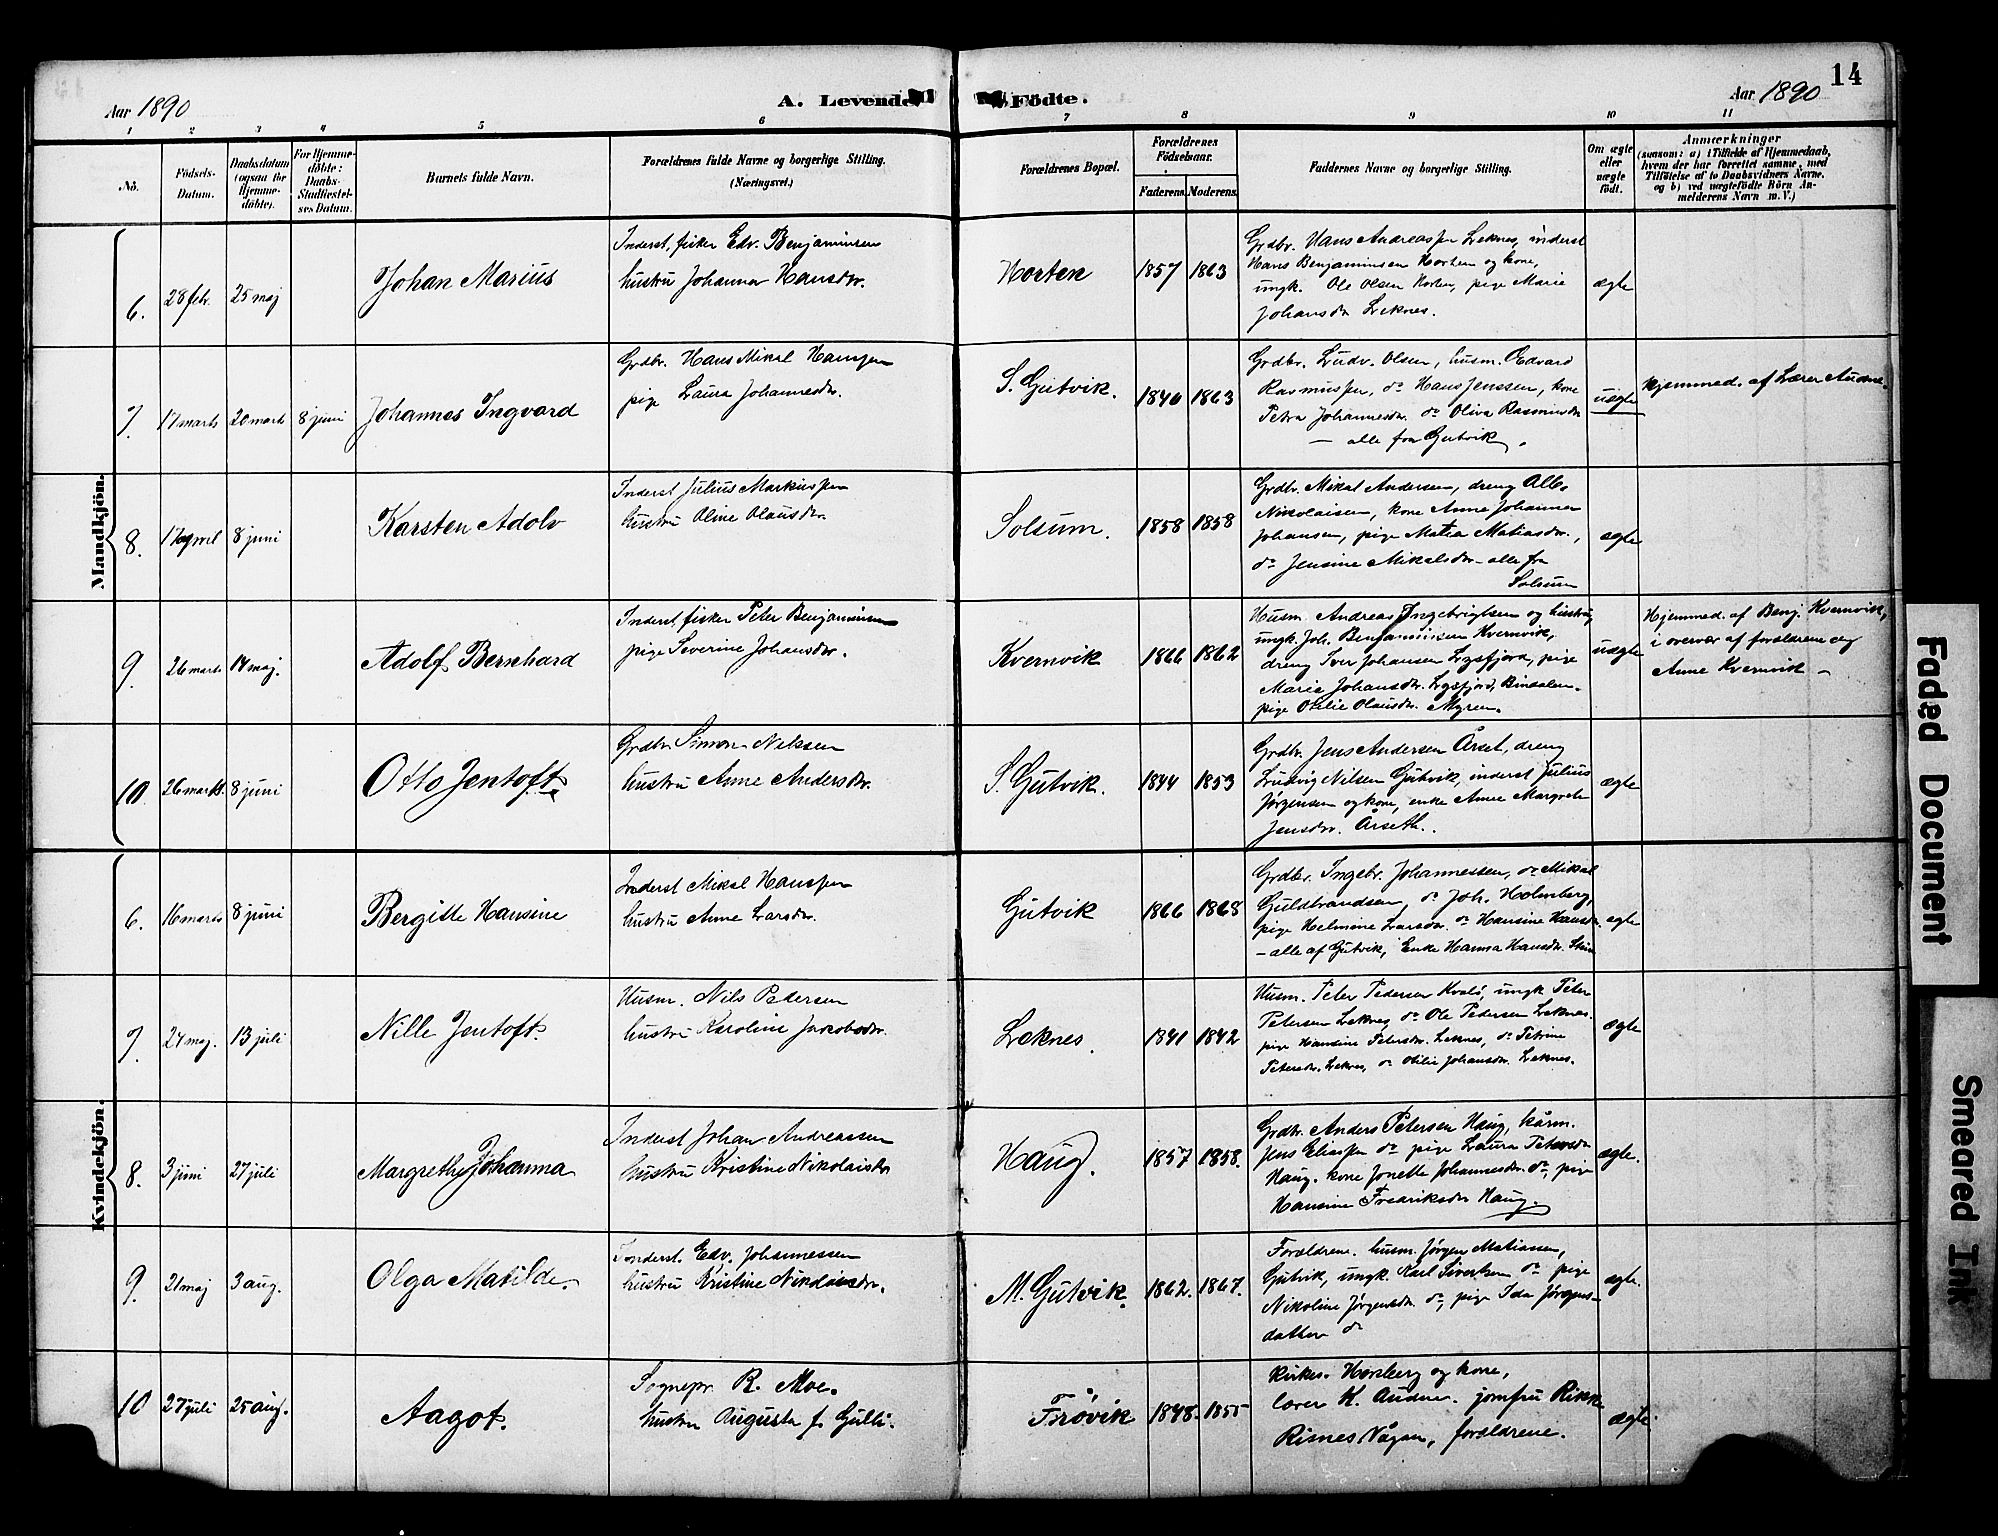 14
Aar 1890
A. Levende Födte.
Aar 1890
1 2 3 4 5 6 7 8 9 10 11
No.
Födsels-
Datum.
Daabsdatum
(ogsaa for
Hjemme-
döbte).
For Hjemme-
döbte:
Daabs-
Stadfæstel-
ses Datum.
Barnets fulde Navn.
Forældrenes fulde Navne og borgerlige Stilling.
(Næringsvei.)
Forældrenes Bopæl.
Forældrenes
Födselsaar.
Faderens. Moderens.
Faddernes Navne og borgerlige Stilling.
Om ægte
eller
uægte
födt.
Anmærkninger
(saasom: a) i Tilfælde af Hjemmedaab,
hvem der har forrettet samme, med
Tilföielse af to Daabsvidners Navne,
og b) ved uægtefödte Börn An-
melderens Navn m. V.)
Mandkjön.
6. 28 febr. 25 maj
Johan Marius
Inderst, fisker Edv. Benjaminsen
hustru Johanna Hansdtr.
Horten
1857 1863
Grdbr. Hans Andreassen Leknes, inderst
Hans Benjaminsen Horten og kone,
ungk. Ole Olsen Horten, pige Marie
Johansdtr Leknes.
ægte
7. 17 marts 20 marts 8 juni
Johannes Ingvard
Grdbr. Hans Mikal Hansen
pige Laura Johannesdtr.
S. Gutvik.
1840 1863
Grdbr. Ludv. Olsen, husm. Edvard
Rasmussen, do Hans Jenssen, kone
Petra Johannesdtr. do Oliva Rasmusdtr
— alle fra Gutvik.
uægte
Hjemmed. af Lærer Audne
8. 17 april 8 juni
Karsten Adolv
Inderst Julius Markussen
hustru Oline Olausdtr
Solsum.
1858 1858
Grdbr. Mikal Andersen, dreng Alb.
Nikolaisen, kone Anne Johanna
Johansen, pige Matea Matiasdtr.,
do Jensine Mikalsdtr – alle fra
Solsum
ægte
9. 26 marts 14 maj.
Adolf Bernhard
Inderst, fisker Peter Benjaminsen
pige Severine Johansdtr.
Kvernvik
1866 1862
Husm. Andreas Ingebrigtsen og hustru,
ungk. Joh. Benjaminsen Kvernvik,
dreng Iver Johansen Lysfjord, pige
Marie Johansdtr. Lysfjord, Bindalen.
pige Otilie Olausdtr. Myren.
uægte
Hjemmed. af Benj. Kvernvik,
i overvær af forældrene og
Anne Kvernvik –
10. 26 marts. 8 juni
Otto Jentoft
Grdbr. Simon Nilssen
hustru Anne Andersdtr.
S. Gutvik.
1844 1853
Grdbr. Jens Andersen Årset, dreng
Ludvig Nilsen Gutvik, inderst Julius
Jørgensen og kone, enke Anne Margrete
Jensdtr. Årseth.
ægte
Kvindekjön.
6. 16 marts 8 juni
Bergitte Hansine
Inderst Mikal Hanssen
hustru Anne Larsdtr.
Gutvik
1866 1868
Grdbr. Ingebr. Johannessen, do Mikal
Guldbrandsen, do Joh. Holmberg,
pige Helmine Larsdtr. do Hansine Hansdtr.
– alle af Gutvik, Enke Hanna Hansdtr.
ægte
7. 24 maj. 13 juli
Nille Jentoft.
Husm. Nils Pedersen
hustru Karoline Jacobsdtr.
Leknes.
1841 1842
Husm. Peter Pedersen Kvalø, ungk Peter
Petersen Leknes, do Ole Pedersen Leknes.
pige Hansine Petersdtr. Leknes, do Petrine
Petersdtr. Leknes, do Otilie Johansdtr. Leknes.
ægte
8. 3 juni 27 juli
Margrethe Johanna
Inderst Johan Andreassen
hustru Kristine Nikolaisdtr
Haug.
1857 1858.
Grdbr. Anders Petersen Haug, kårm.
Jens Eliassen do pige Laura Petersdtr
Haug. kone Jonette Johannesdtr. do, pige
Hansine Fredriksdtr Haug.
ægte.
9. 21 maj 3 aug.
Olga Matilde.
Inderst. Edv. Johannessen
hustru Kristine Nikolaisdtr.
M. Gutvik.
1862. 1867.
Forældrene. husm. Jørgen Matiassen,
Gutvik, ungk. Karl Sivertsen do pige
Nikoline Jørgensdtr do, pige Ida Jørgens-
datter do
ægte.
10 27 juli 25 aug.
Aagot.
Sognepr. R. Moe.
hustru Augusta f. Gulli.
Frøvik
1848. 1855
Kirkes. Horsberg og kone,
lærer H. Audne. jomfru Rikke
Risnes Vågan, forældrene.
ægte.
Faded Document
Smeared Ink